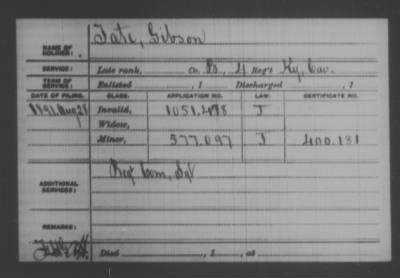 Tate, Gibson
NAME OF SOLDIER:
SERVICE: Late rank, Co. B, 4 Reg't Ky. Cav.
TERM OF SERVICE: Enlisted , 1 Discharged , 1
DATE OF FILING. CLASS. APPLICATION NO. LAW. CERTIFICATE NO.
1891 Aug 28 Invalid, 1051.478 J
Widow,
Minor, 577.097 J 400.181
ADDITIONAL SERVICES: Regt Com, Sgt
REMARKS:
Died , 1 , at